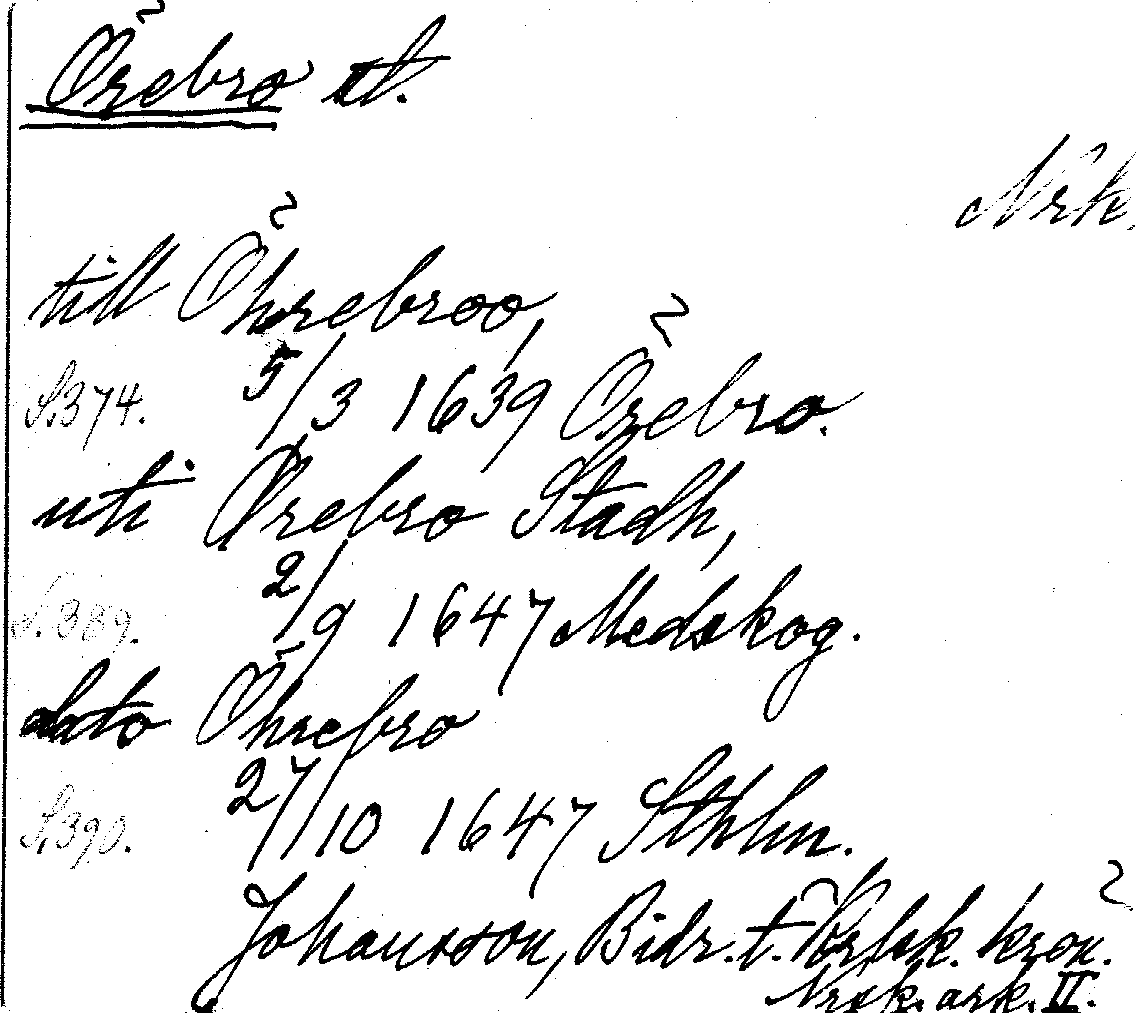 Örebro st.
Nrk.
till Öhrebroo,
S.374. 5/3 1639 Örebro.
uti Örebro Stadh,
S.389. 2/9 1647 Medskog.
dato Öhrebro
S.390. 27/10 1647 Sthlm.
Johansson, Bidr. t. kron.
Nrsk. ark. II.